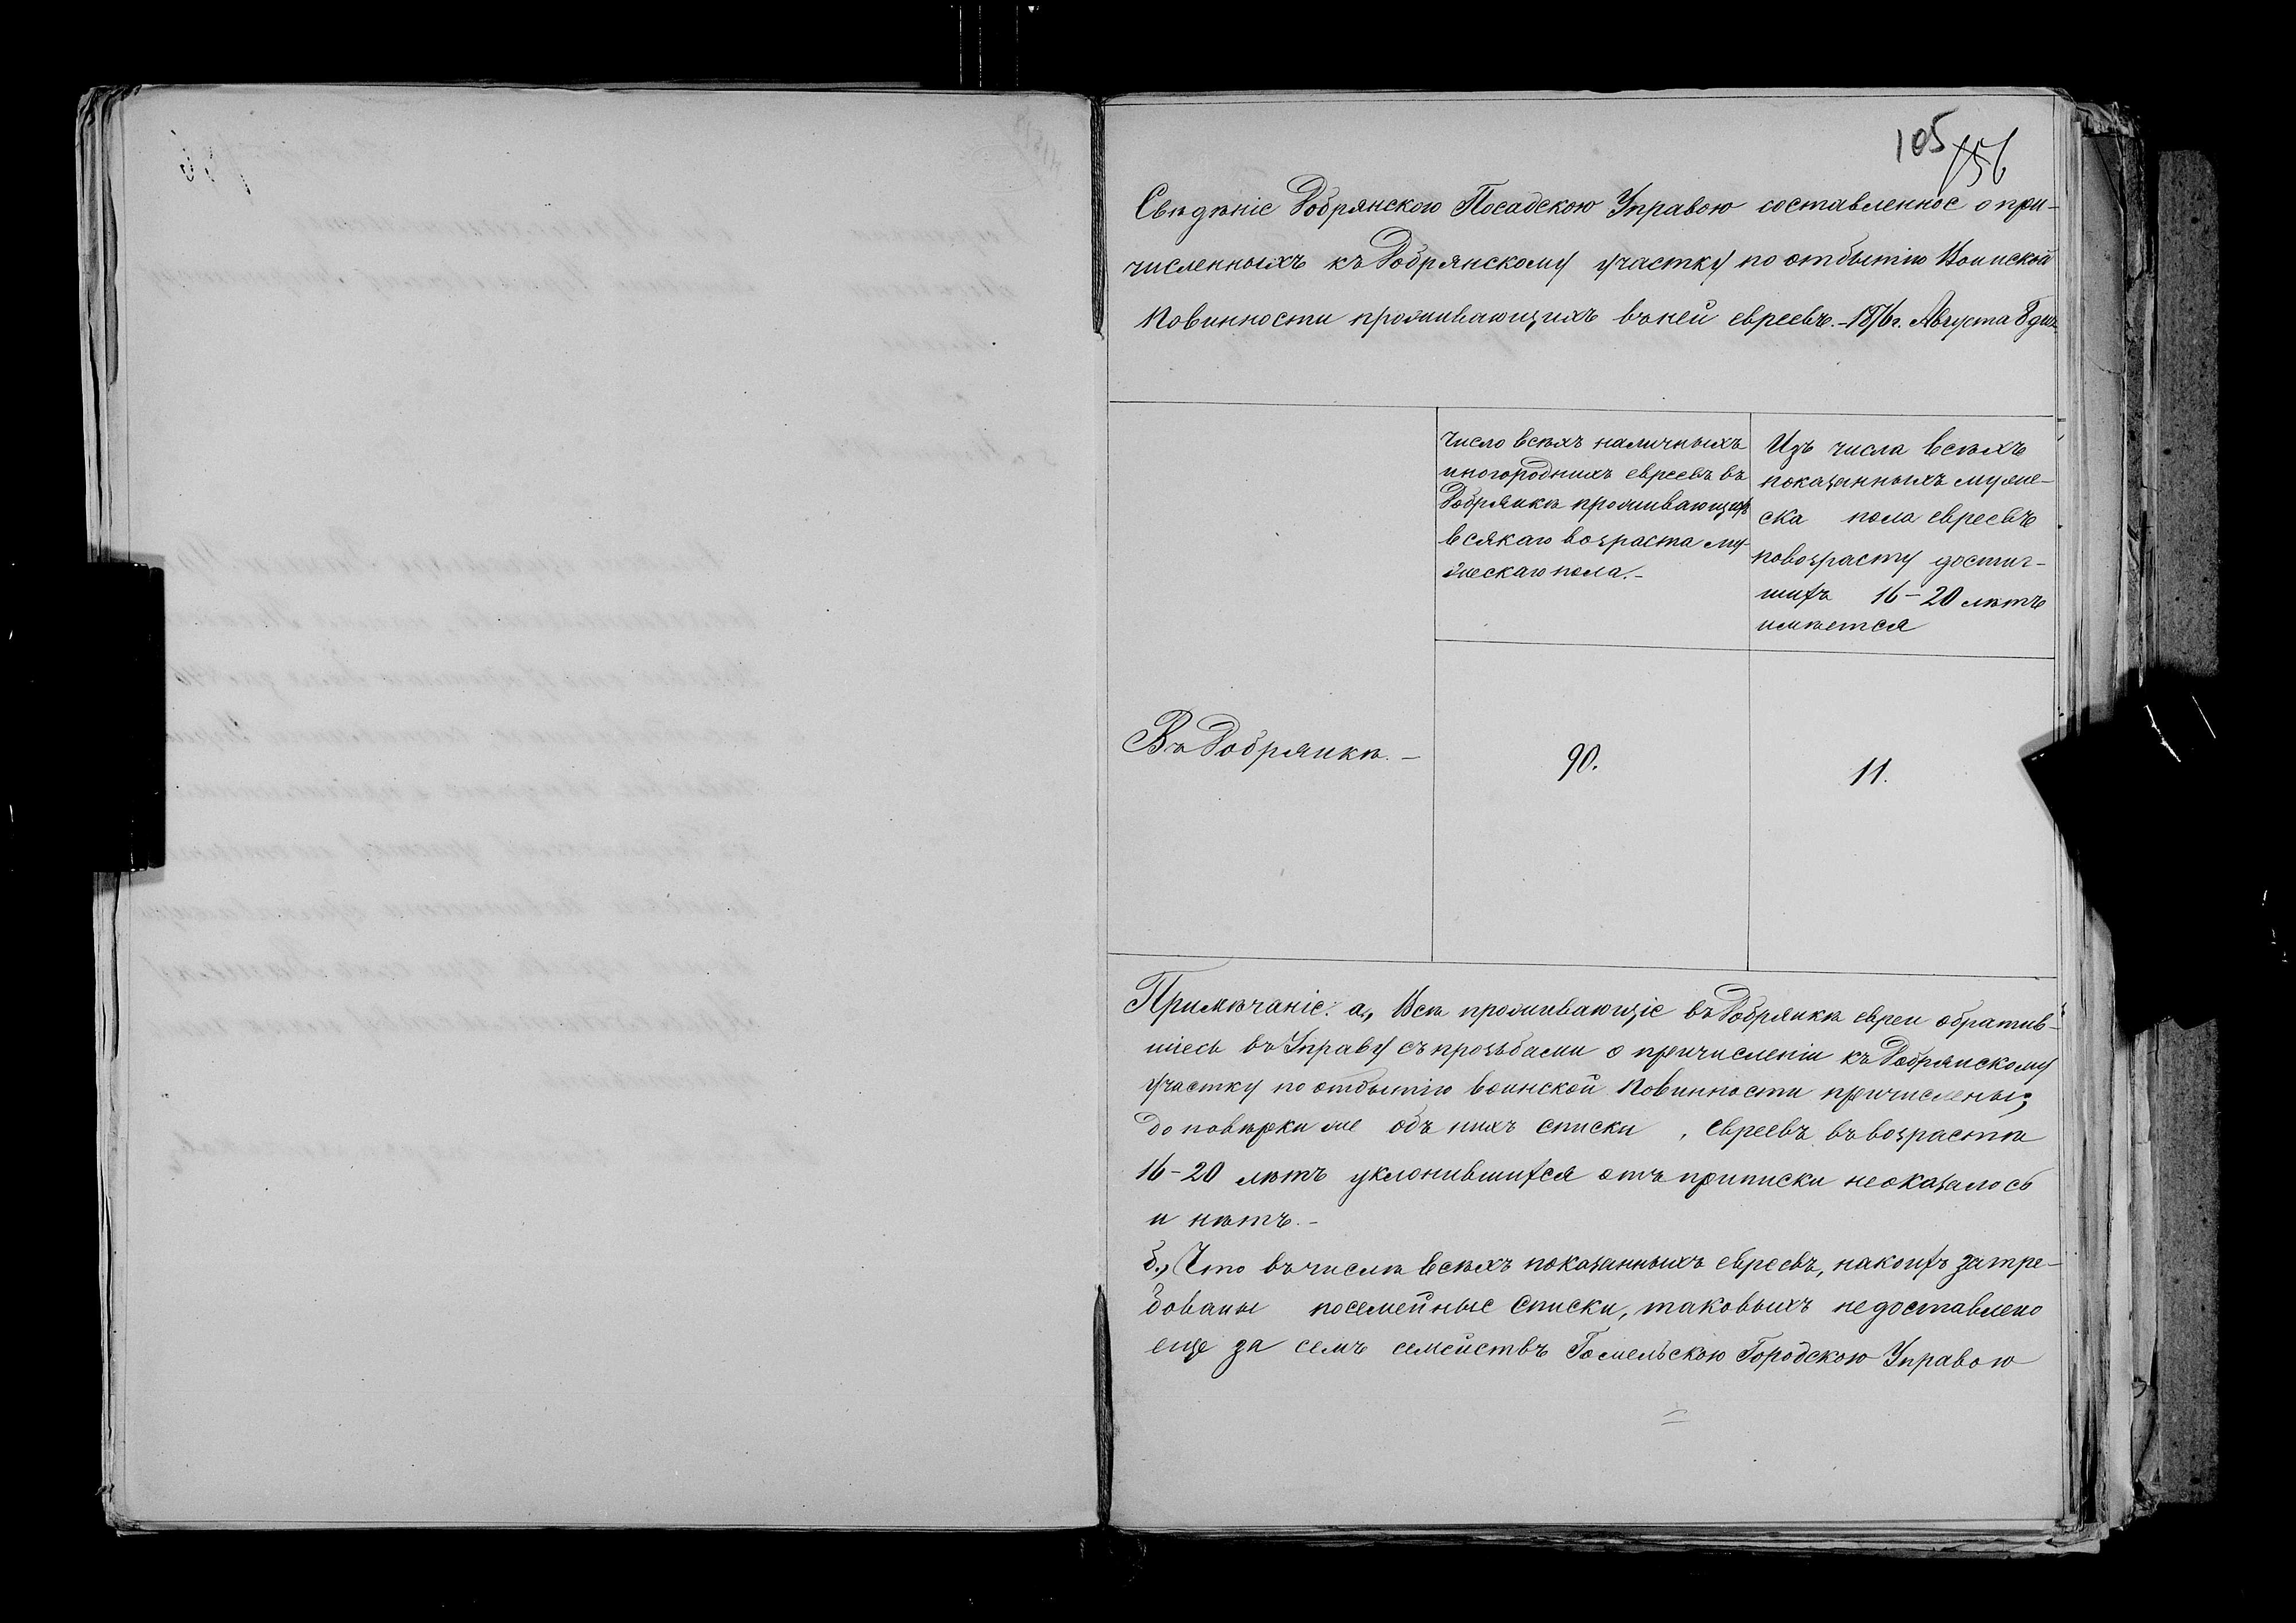 105 156
Свѣдѣніе Добрянскою Посадскою Управою составленное о при-
численныхъ къ Добрянскому участку по отбытію Воинской
Повинности проживающихъ въ ней евреевъ. - 1876 г. Августа 8 дня
Число всѣхъ наличныхъ
иногородныхъ евреевъ въ
Добрянкѣ проживающихъ
всякаго возраста му-
жескаго пола. -
Изъ числа всѣхъ
показанныхъ муже-
ска пола евреевъ
по возрасту достиг-
шихъ 16-20 лѣтъ
имѣется
Въ Добрянкѣ. -
90.
11.
Примѣчаніе: а., Всѣ проживающіе въ Добрянкѣ евреи обратив-
шіесь въ Управу съ прозьбами о причисленіи къ Добрянскому
участку по отбытію воинской Повинности причислены;
до повѣрки же объ нихъ списки, евреевъ въ возрастѣ
16-20 лѣтъ уклонившихся отъ приписки не оказалось
и нѣтъ. -
б., Что въ числѣ всѣхъ показанныхъ евреевъ, на коихъ затре-
бованы посемейные списки, таковыхъ не доставлено
еще за семь семействъ Гомельскою Городскою Управою